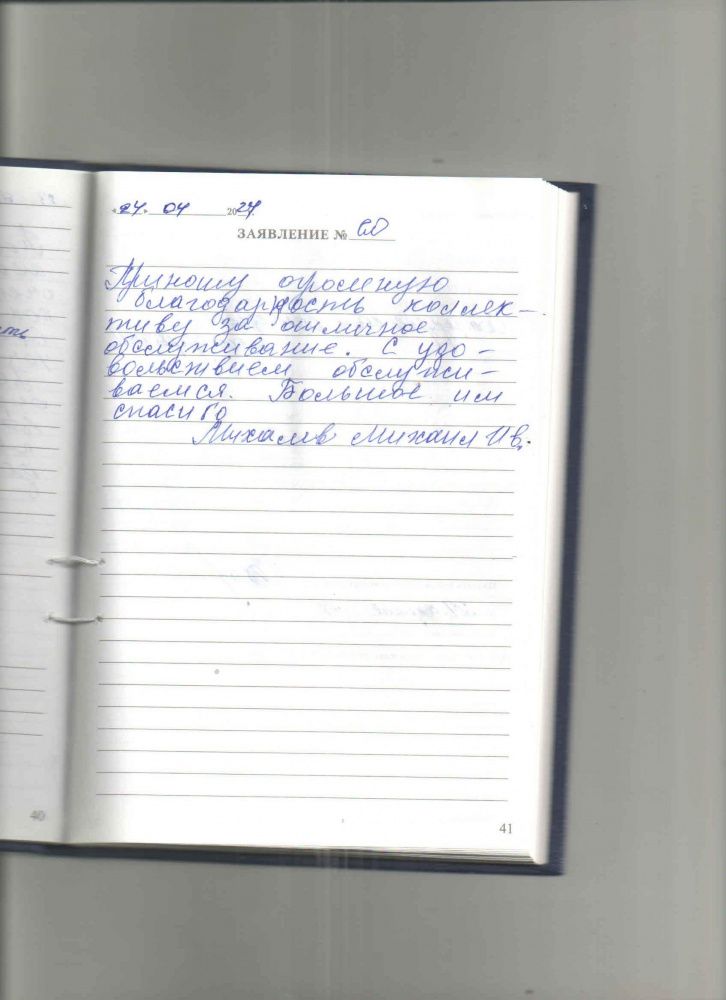 «24» 04 2024
ЗАЯВЛЕНИЕ №
Приношу огромную
благодарность коллек-
тиву за отличное
обслуживание. С удо-
вольствием обслужи-
ваемся. Большое им
спасибо
Михалев Михаил Ив.
40
41